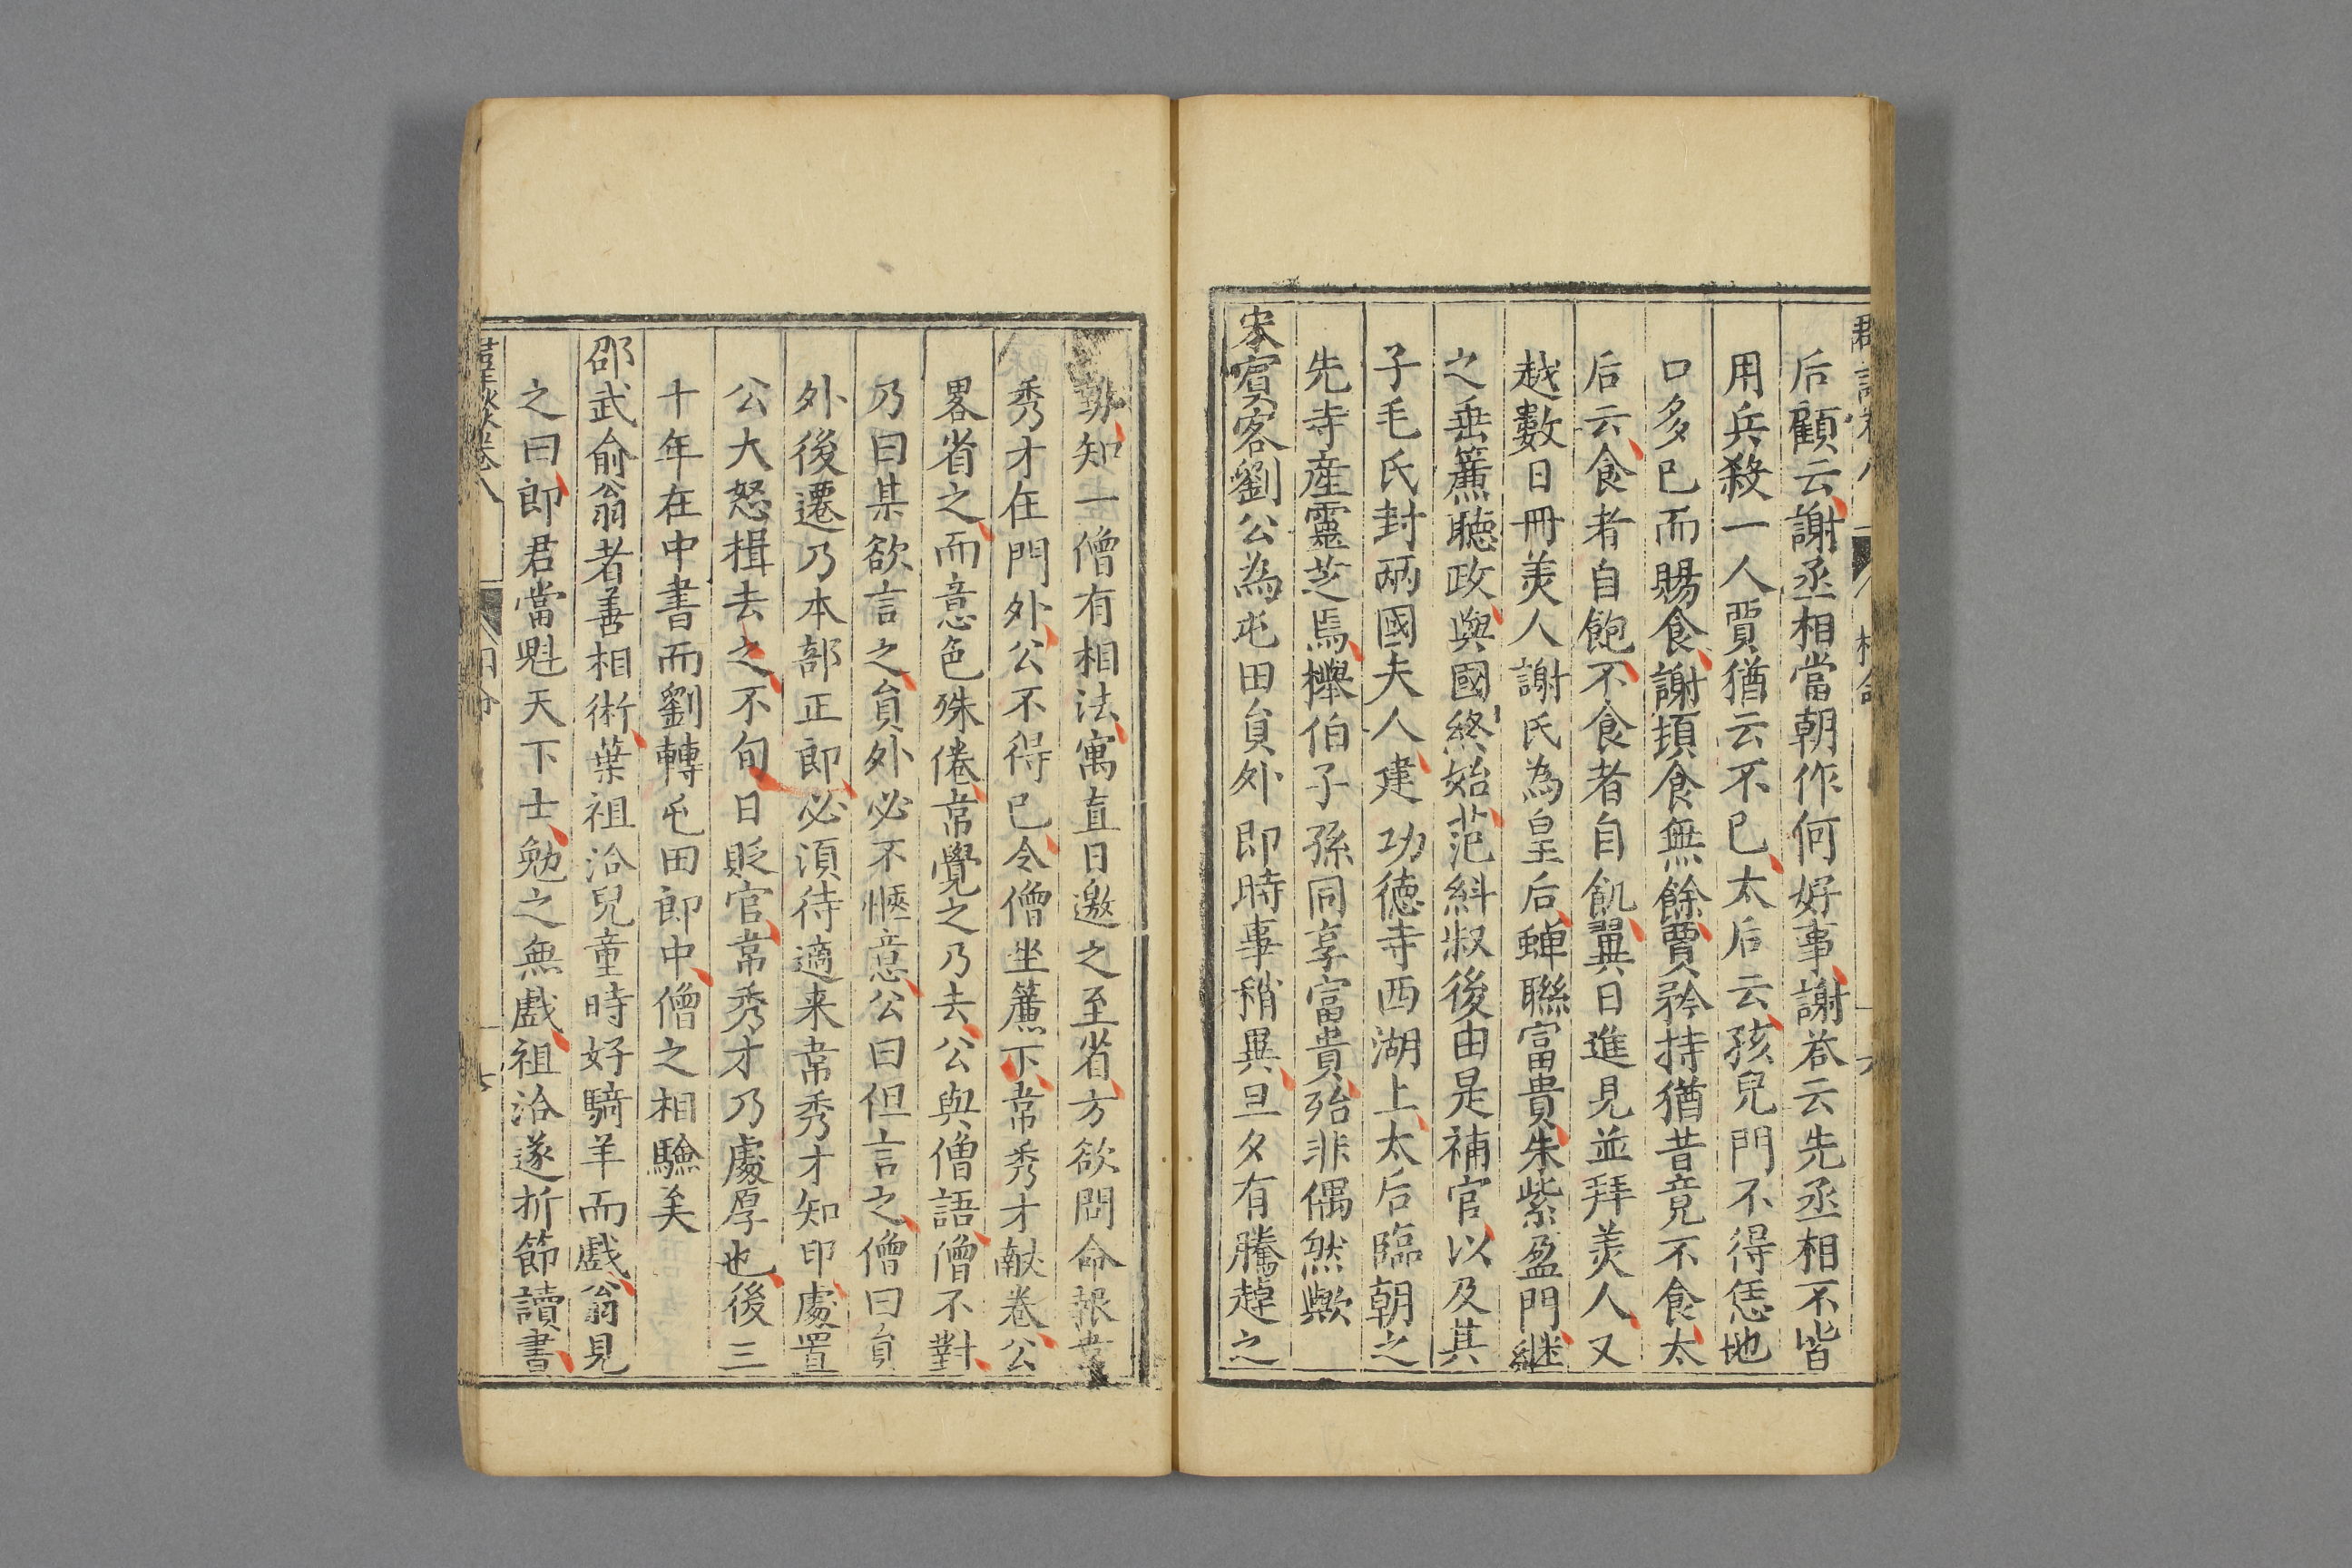 后顧云謝丞相當朝作何好事謝答云先丞相不皆
用兵殺一人賈猶云不已太后云孩兒門不得恁地
口多已而賜食謝頃食無餘賈矜持猶昔竟不食太
后云食者自飽不食者自飢翼日進見並拜美人又
越數日冊美人謝氏為皇后蟬聯富貴朱紫盈門継
之垂簾聴政與國終始范糾淑後由是補官以及其
子毛氏封两國夫人建功德寺西湖上太后臨朝之
先寺産靈芝焉櫸伯子孫同享富貴殆非偶然歟
宋賓客劉公為屯田負外即時事稍異旦夕有騰趠之
勢知一僧有相法寓直日邀之至省方欲問命報韋
秀才在門外公不得已令僧坐簾下韋秀才献卷公
畧省之而意色殊倦韋覺之乃去公與僧語僧不對
乃曰某欲言之負外必不愜意公曰但言之僧曰負
外後遷乃本部正郎必須待適来韋秀才知印處置
公大怒揖去之不旬日貶官韋秀才乃處厚也後三
十年在中書而劉轉屯田郎中僧之相驗矣
邵武俞翁者善相術葉祖洽兒童時好騎羊而戲翁見
之曰郎君當魁天下士勉之無戲祖洽遂折節讀書